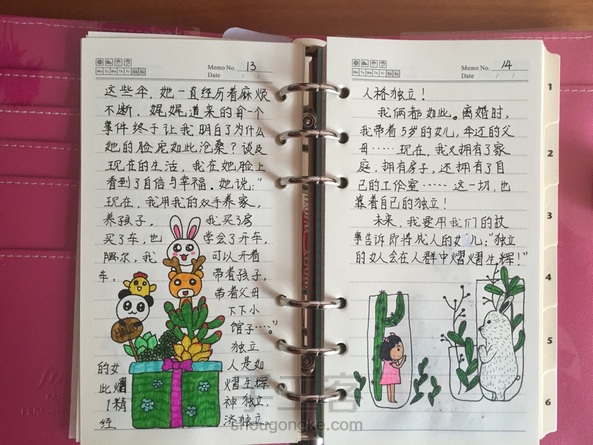 Memo No. 13
Date / /
这些年,她一直经历着麻烦
不断,娓娓道来的每一个
事件终于让我明白了为什么
她的脸庞如此沧桑?谈及
现在的生活,我在她脸上
看到了自信与幸福,她说:“
现在,我用我的双手养家,
养孩子, 我买了房
买了车,也 学会了开车,
偶尔,我 可以开着
车, 带着孩子,
带着父母
下下小
馆子……”
独立
的女 人是如
此 熠生辉
神独立
经 济独立
Hello
Memo No. 14
Date / /
人格独立!
我俩都如此。离婚时,
我带着5岁的女儿,年迈的父
母……现在,我又拥有了家
庭,拥有房子,还拥有了自
己的工作室……这一切,也
靠着自己的独立!
未来,我要用我们的故
事告诉即将成人的女儿:“独立
的女人会在人群中熠熠生辉!”
1
2
3
4
5
6
shougongke.com